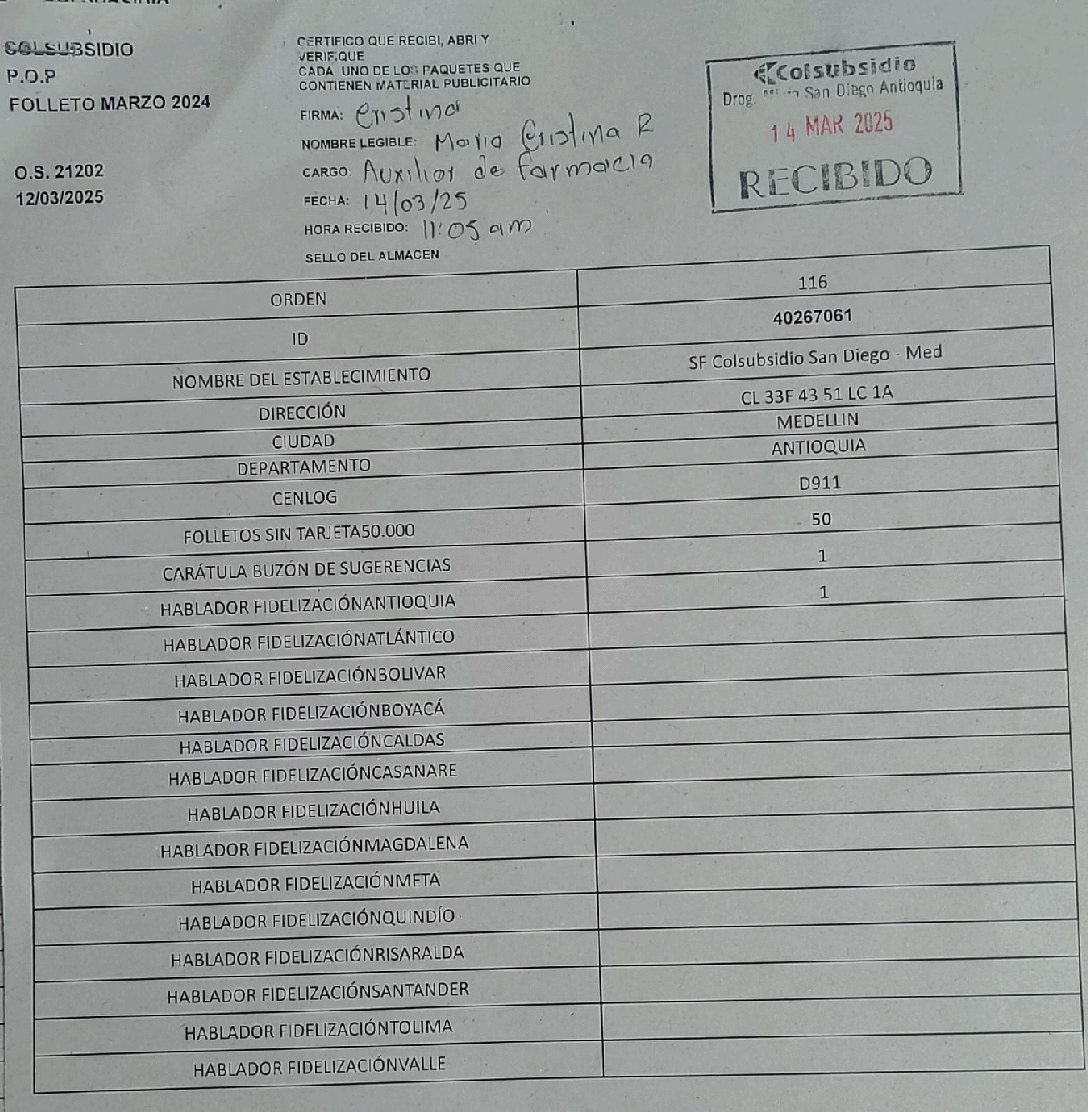 COLSUBSIDIO
P.O.P
FOLLETO MARZO 2024
O.S. 21202
12/03/2025
CERTIFICO QUE RECIBI, ABRI Y
VERIFIQUE
CADA UNO DE LOS PAQUETES QUE
CONTIENEN MATERIAL PUBLICITARIO
FIRMA: Cristina
NOMBRE LEGIBLE: Maria Cristina R
CARGO: Auxiliar de farmacia
FECHA: 14/03/25
HORA RECIBIDO: 11:05 am
SELLO DEL ALMACEN
Colsubsidio
Drog. San Diego Antioquia
14 MAR 2025
RECIBIDO
ORDEN 116
ID 40267061
NOMBRE DEL ESTABLECIMIENTO SF Colsubsidio San Diego - Med
DIRECCIÓN CL 33F 43 51 LC 1A
CIUDAD MEDELLIN
DEPARTAMENTO ANTIOQUIA
CENLOG D911
FOLLETOS SIN TARJETA50.000 50
CARÁTULA BUZÓN DE SUGERENCIAS 1
HABLADOR FIDELIZACIÓNANTIOQUIA 1
HABLADOR FIDELIZACIÓNATLÁNTICO
HABLADOR FIDELIZACIÓNBOLIVAR
HABLADOR FIDELIZACIÓNBOYACÁ
HABLADOR FIDELIZACIÓNCALDAS
HABLADOR FIDELIZACIÓNCASANARE
HABLADOR FIDELIZACIÓNHUILA
HABLADOR FIDELIZACIÓNMAGDALENA
HABLADOR FIDELIZACIÓNMETA
HABLADOR FIDELIZACIÓNQUINDÍO
HABLADOR FIDELIZACIÓNRISARALDA
HABLADOR FIDELIZACIÓNSANTANDER
HABLADOR FIDELIZACIÓNTOLIMA
HABLADOR FIDELIZACIÓNVALLE